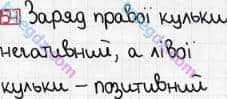 54 Заряд правої кульки
негативний, а лівої
кульки – позитивний